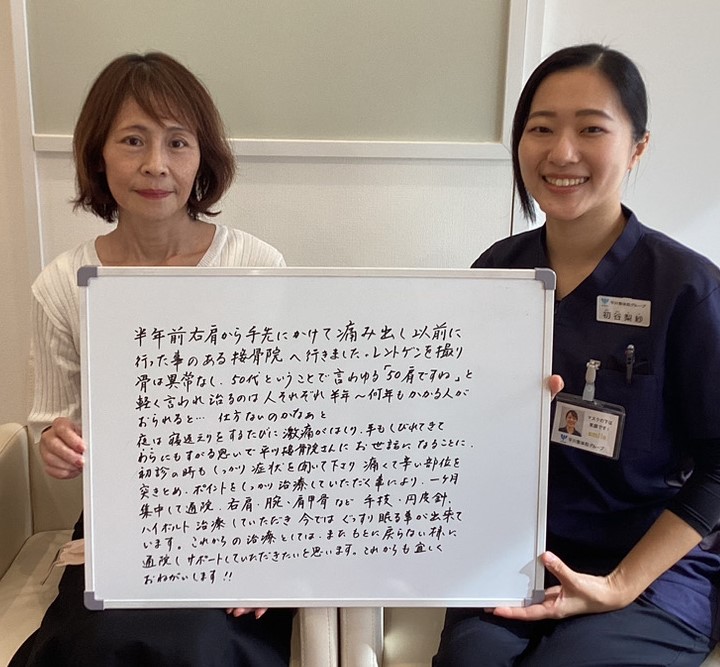 半年前右肩から手先にかけて痛み出し以前に
行った事のある接骨院へ行きました。レントゲンを撮り
骨は異常なし、50代ということで言わゆる「50肩ですね」と
軽く言われ治るのは人それぞれ半年〜何年もかかる人が
おられると… 仕方ないのかなぁと
夜は寝返えりをするたびに激痛がはしり、手もしびれてきて
わらにもすがる思いで平川接骨院さんにお世話になることに、
初診の時もしっかり症状を聞いて下さり 痛くて辛い部位を
突きとめ、ポイントをしっかり治療していただく事により、一ヶ月
集中して通院、右肩・腕・肩甲骨など 手技・円皮針、
ハイボルト治療していただき 今ではぐっすり眠る事が出来て
います。これからの治療としては、またもとに戻らない様に
通院しサポートしていただきたいと思います。これからも宜しく
おねがいします!!
平川接骨院グループ
初谷梨紗
笑顔です!
平川接骨院グループ